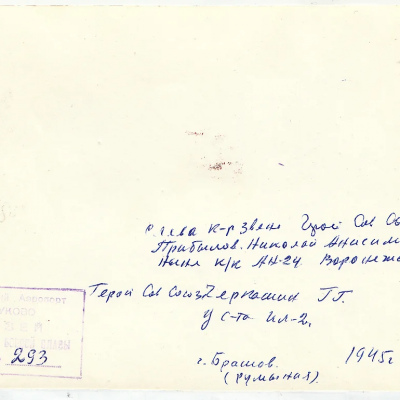 Слева к-р Звена Герой Сов Со
Прибылов. Николай Анисим
ныне к/к АН-24. Воронеж
Герой Сов Союз Черкашин Г.Г.
у с-та ил-2.
г. Брашов. 1945г
(Румыния).
293